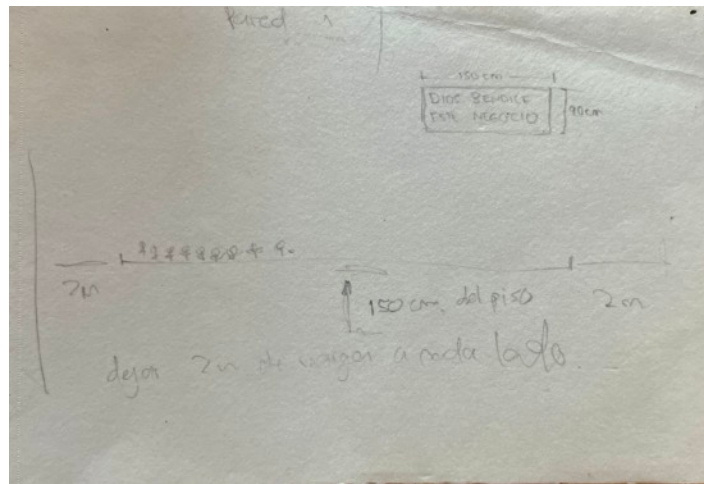 Pared 1
150 cm
DIOS BENDICE
ESTE NEGOCIO
90cm
2m
150 cm, del piso
2m
dejar 2m de margen a cada lado.